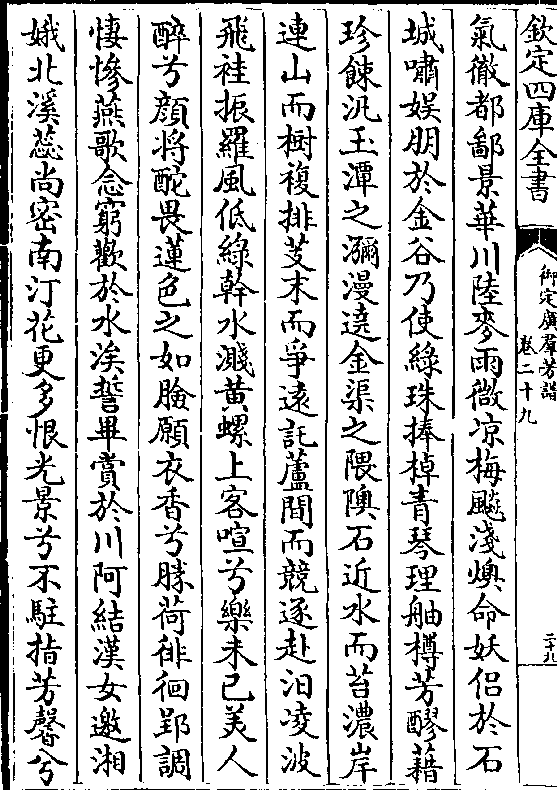 欽定四庫全書
御定廣羣芳譜
卷二十九
二十九
氣徹都鄙景華川陸麥雨微凉梅飈淺燠命妖侣於石
城嘯娱朋於金谷乃使綠珠捧棹青琴理舳樽芳醪藉
珍餗汎玉潭之瀰漫遶金渠之隈隩石近水而苔濃岸
連山而樹複排芰末而爭遠託蘆間而競逐赴汨凌波
飛袿振羅風低綠幹水濺黄螺上客喧兮樂未已美人
醉兮顔將酡畏蓮色之如臉願衣香兮勝荷徘徊郢調
悽惨燕歌念窮歡於水涘誓畢賞於川阿結漢女邀湘
娥北溪蕊尚密南汀花更多恨光景兮不駐指芳馨兮